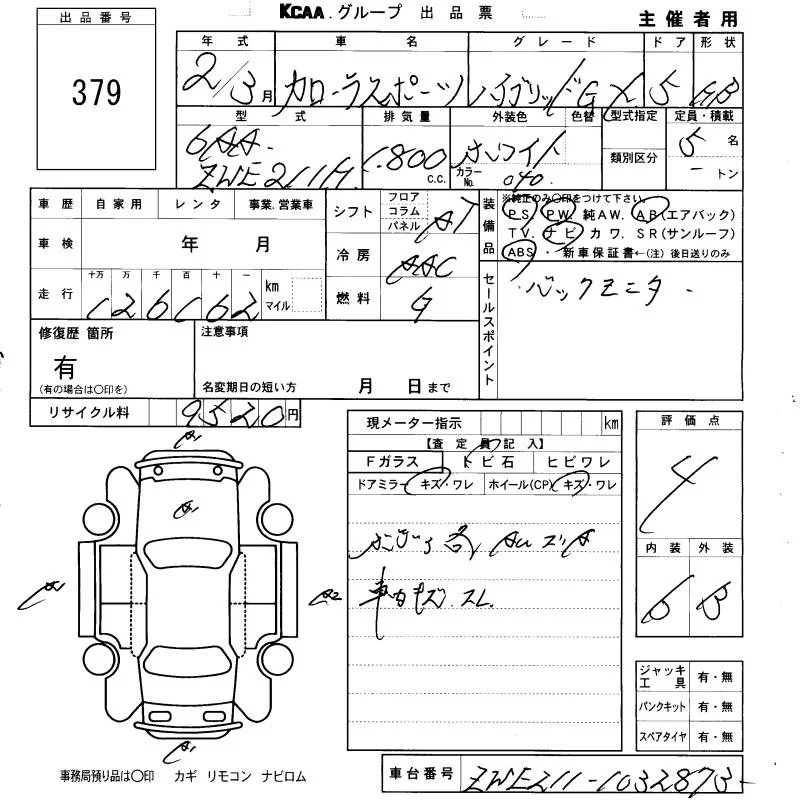 KCAA.グループ 出品票
主催者用
出品番号
379
年式 車名 グレード ドア 形状
2/3月 カローラスポーツ ハイブリッドGX 5 HB
型式 排気量 外装色 色替 型式指定 定員・積載
6AA- 1.800 ホワイト 5名
類別区分
ZWE211H c.c. カラーNo. 040 -トン
車歴 自家用 レンタ 事業.営業車
シフト フロア コラム パネル AT
車検 年 月
冷房 AAC
走行 十万 万 千 百 十 一 km マイル
126162
燃料 G
装備品
※純正のみ〇印をつけて下さい。
PS PW 純AW. AB(エアバック)
TV. ナビ カワ. SR(サンルーフ)
ABS・新車保証書←(注)後日送りのみ
セールスポイント
バックモニター
修復歴 箇所
有
(有の場合は〇印を)
注意事項
名変期日の短い方 月 日まで
リサイクル料 9520円
現メーター指示 km
【査定員記入】
Fガラス トビ石 ヒビワレ
ドアミラー キズ・ワレ ホイール(CP) キズ・ワレ
車内キズ.スレ
評価点
4
内装 外装
6 B
A1
A
A2
A1
ジャッキ工具 有・無
パンクキット 有・無
スペアタイヤ 有・無
事務局預り品は〇印 カギ リモコン ナビロム
車台番号 ZWE211-1032873-